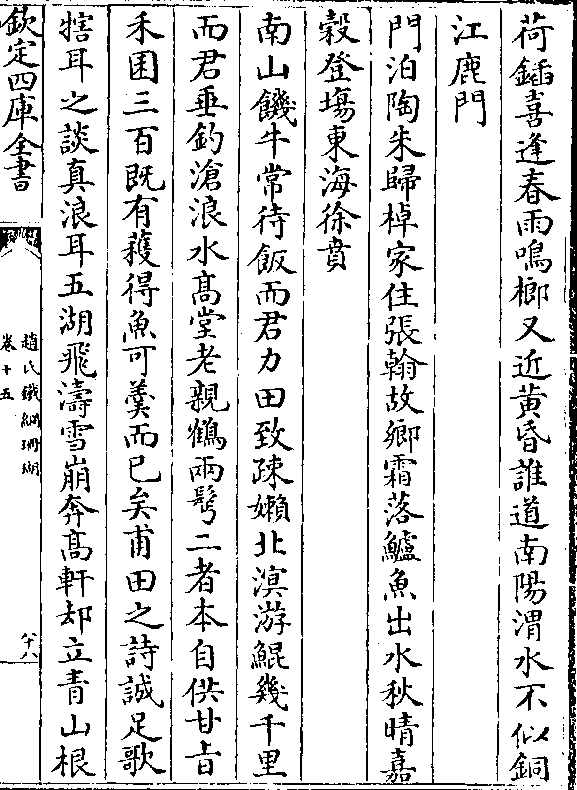 荷鍤喜逢春雨鳴榔又近黄昏誰道南陽渭水不似銅
江鹿門
門泊陶朱歸棹家住張翰故鄉霜落鱸魚出水秋晴嘉
榖登場東海徐賁
南山饑牛常待飯而君力田致疎嬾北溟游鯤幾千里
而君垂釣滄浪水髙堂老親鶴兩髩二者本自供甘㫖
禾囷三百既有穫得魚可羮而已矣甫田之詩誠足歌
犗耳之談真浪耳五湖飛濤雪崩奔髙軒却立青山根
欽定四庫全書
趙氏鐵網珊瑚
卷十五
六十八